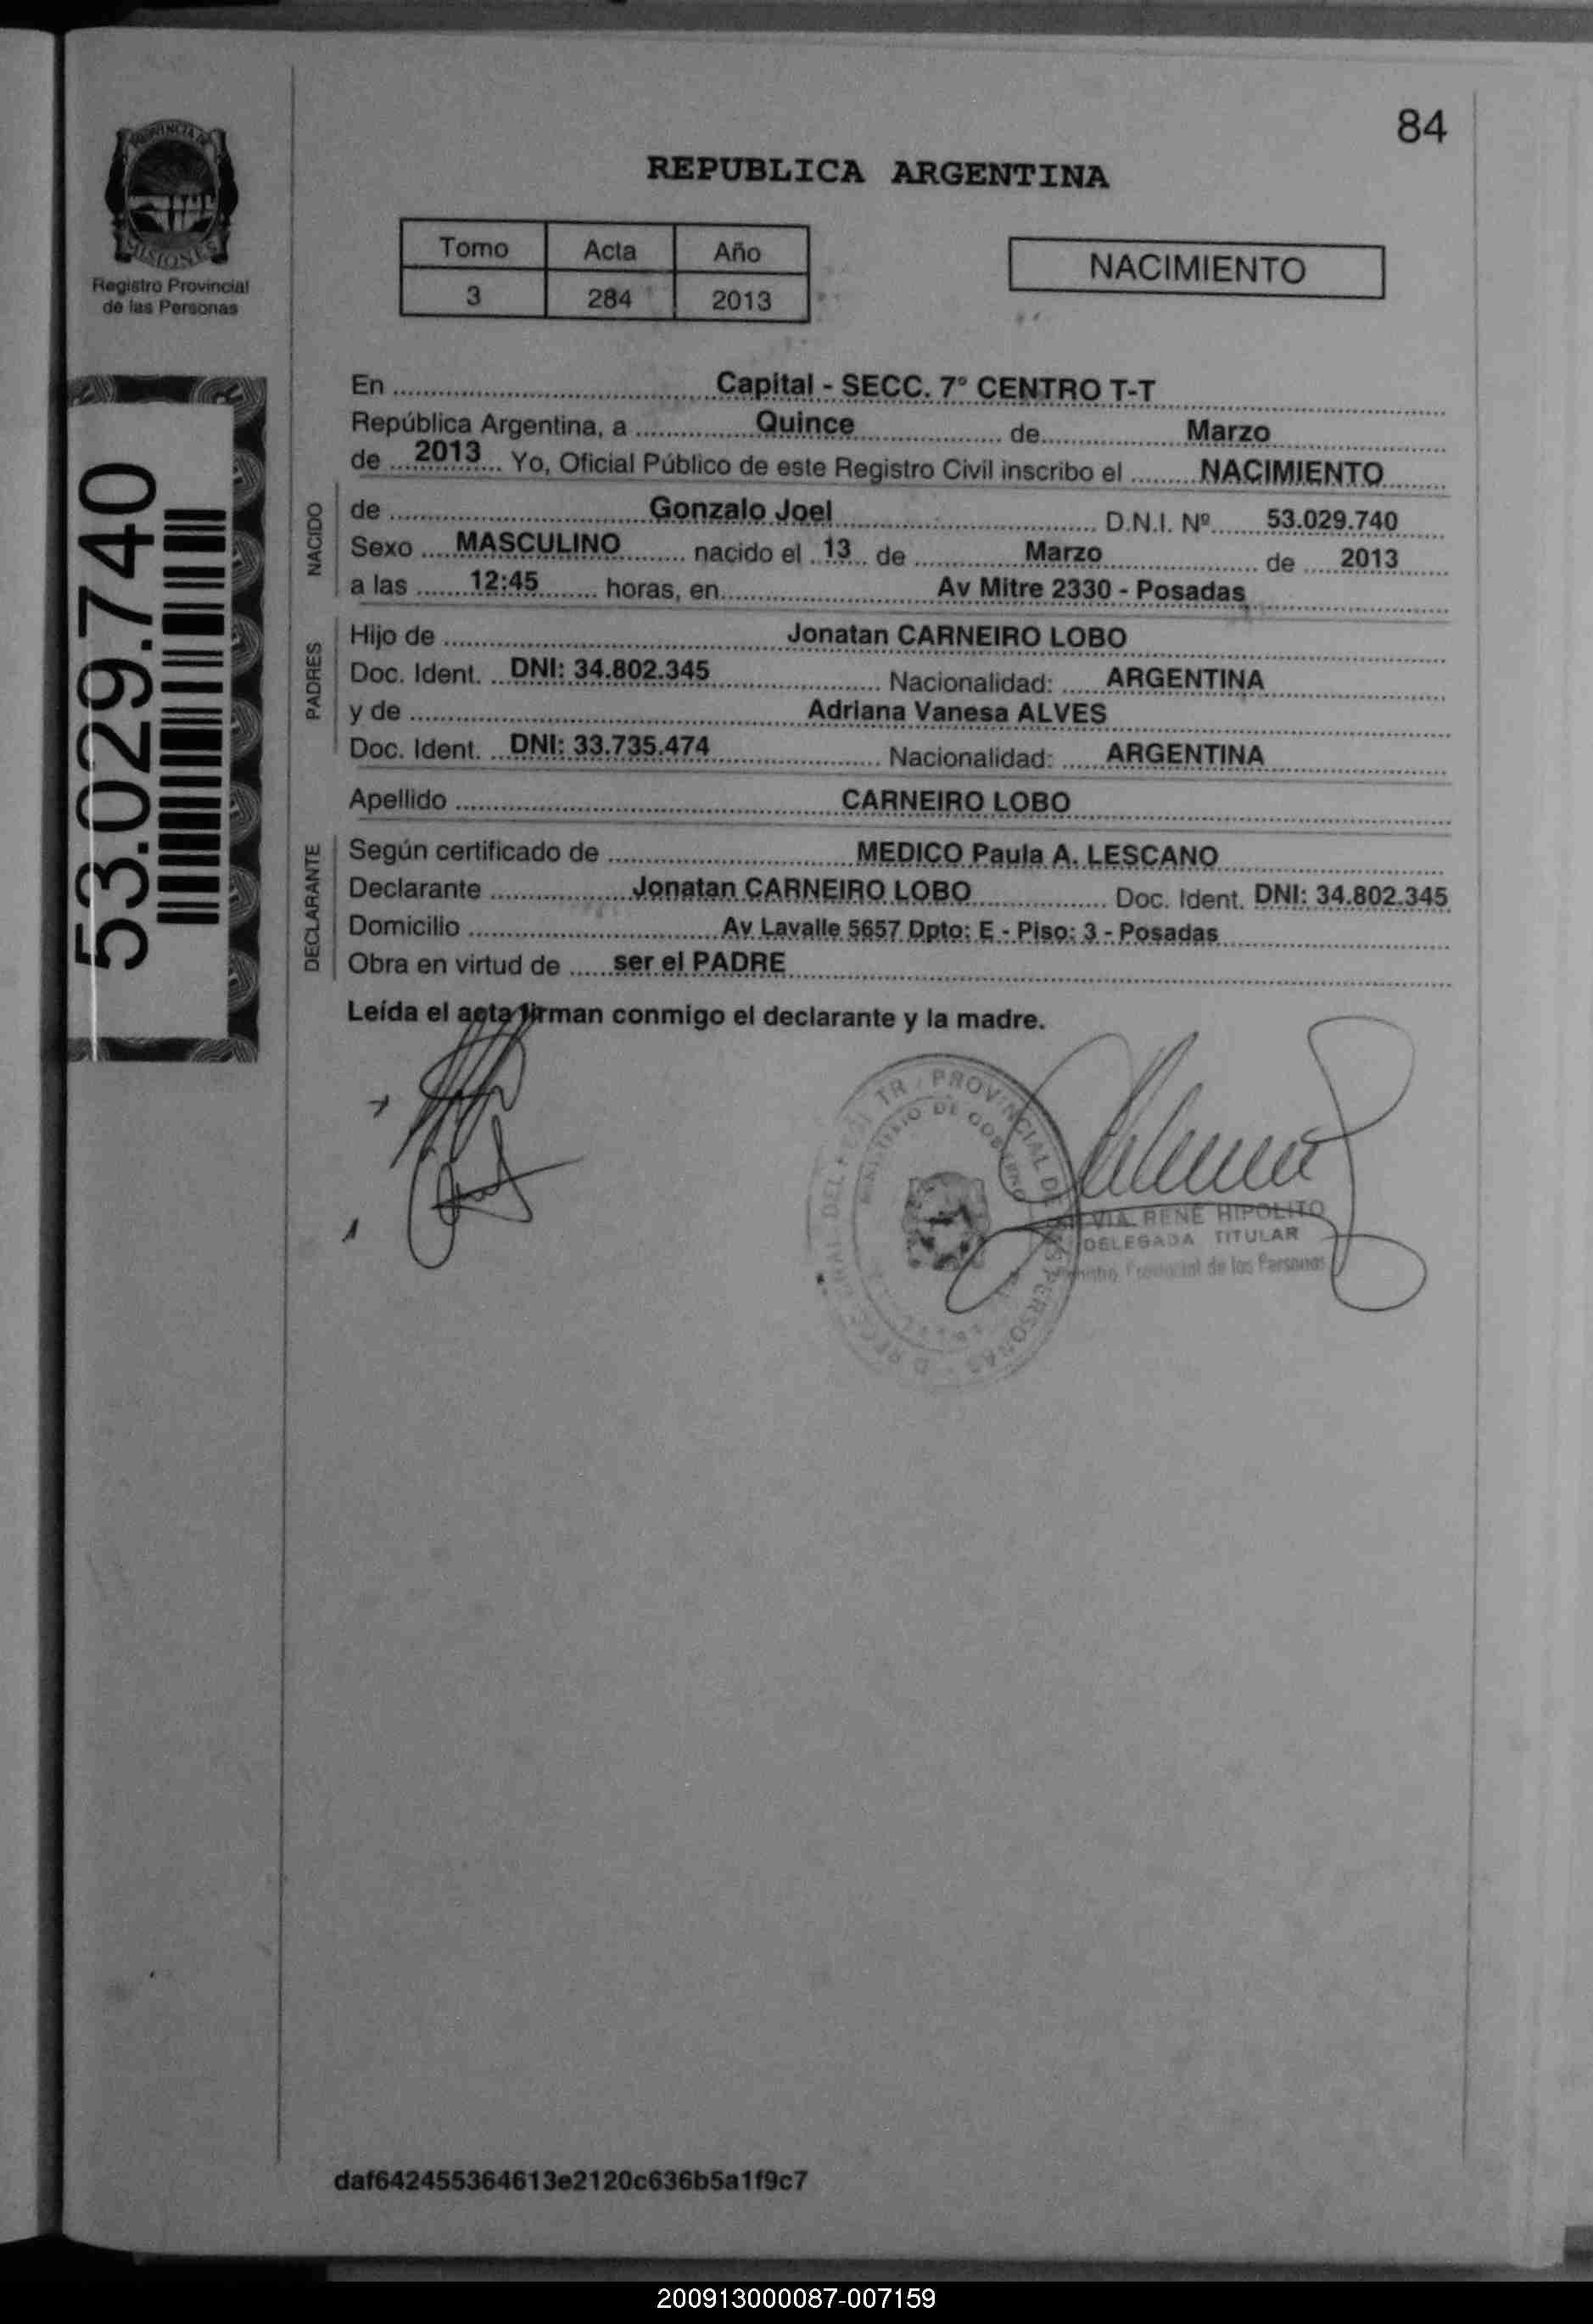 84
PROVINCIA DE
MISIONES
Registro Provincial
de las Personas
REPUBLICA ARGENTINA
Tomo Acta Año
3 284 2013
NACIMIENTO
53.029.740
En Capital - SECC. 7º CENTRO T-T
República Argentina, a Quince de Marzo
de 2013 Yo, Oficial Público de este Registro Civil inscribo el NACIMIENTO
NACIDO
de Gonzalo Joel D.N.I. Nº 53.029.740
Sexo MASCULINO nacido el 13 de Marzo de 2013
a las 12:45 horas, en Av Mitre 2330 - Posadas
PADRES
Hijo de Jonatan CARNEIRO LOBO
Doc. Ident. DNI: 34.802.345 Nacionalidad: ARGENTINA
y de Adriana Vanesa ALVES
Doc. Ident. DNI: 33.735.474 Nacionalidad: ARGENTINA
Apellido CARNEIRO LOBO
DECLARANTE
Según certificado de MEDICO Paula A. LESCANO
Declarante Jonatan CARNEIRO LOBO Doc. Ident. DNI: 34.802.345
Domicilio Av Lavalle 5657 Dpto: E - Piso: 3 - Posadas
Obra en virtud de ser el PADRE
Leída el acta firman conmigo el declarante y la madre.
PROVINCIAL DE LAS PERSONAS
DE GOBIERNO
RENE HIPOLITO
DELEGADA TITULAR
Provincial de las Personas
daf642455364613e2120c636b5a1f9c7
200913000087-007159